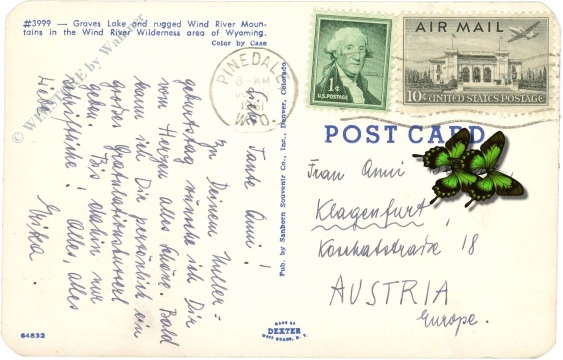 #3999 — Graves Lake and rugged Wind River Moun-
tains in the Wind River Wilderness area of Wyoming.
Color by Case
Tante Anni!
Zu Deinem
geburtstag wünsche ich Dir
vom Herzen alles Schöne. Bald
kann ich Dir persönlich ein
großes
geben. Bis dahin nur
schriftliche! Alles, alles
Liebe
Erika.
64832
Pub. by Sanborn Souvenir Co., Inc., Denver, Colorado
MADE BY
DEXTER
WEST NYACK, N. Y.
PINEDALE
AM
1961
WYO.
1¢
U.S. POSTAGE
AIR MAIL
10¢ UNITED STATES POSTAGE
POST CARD
Frau Anni
Klagenfurt,
Koschatstraße 18
AUSTRIA
Europe.